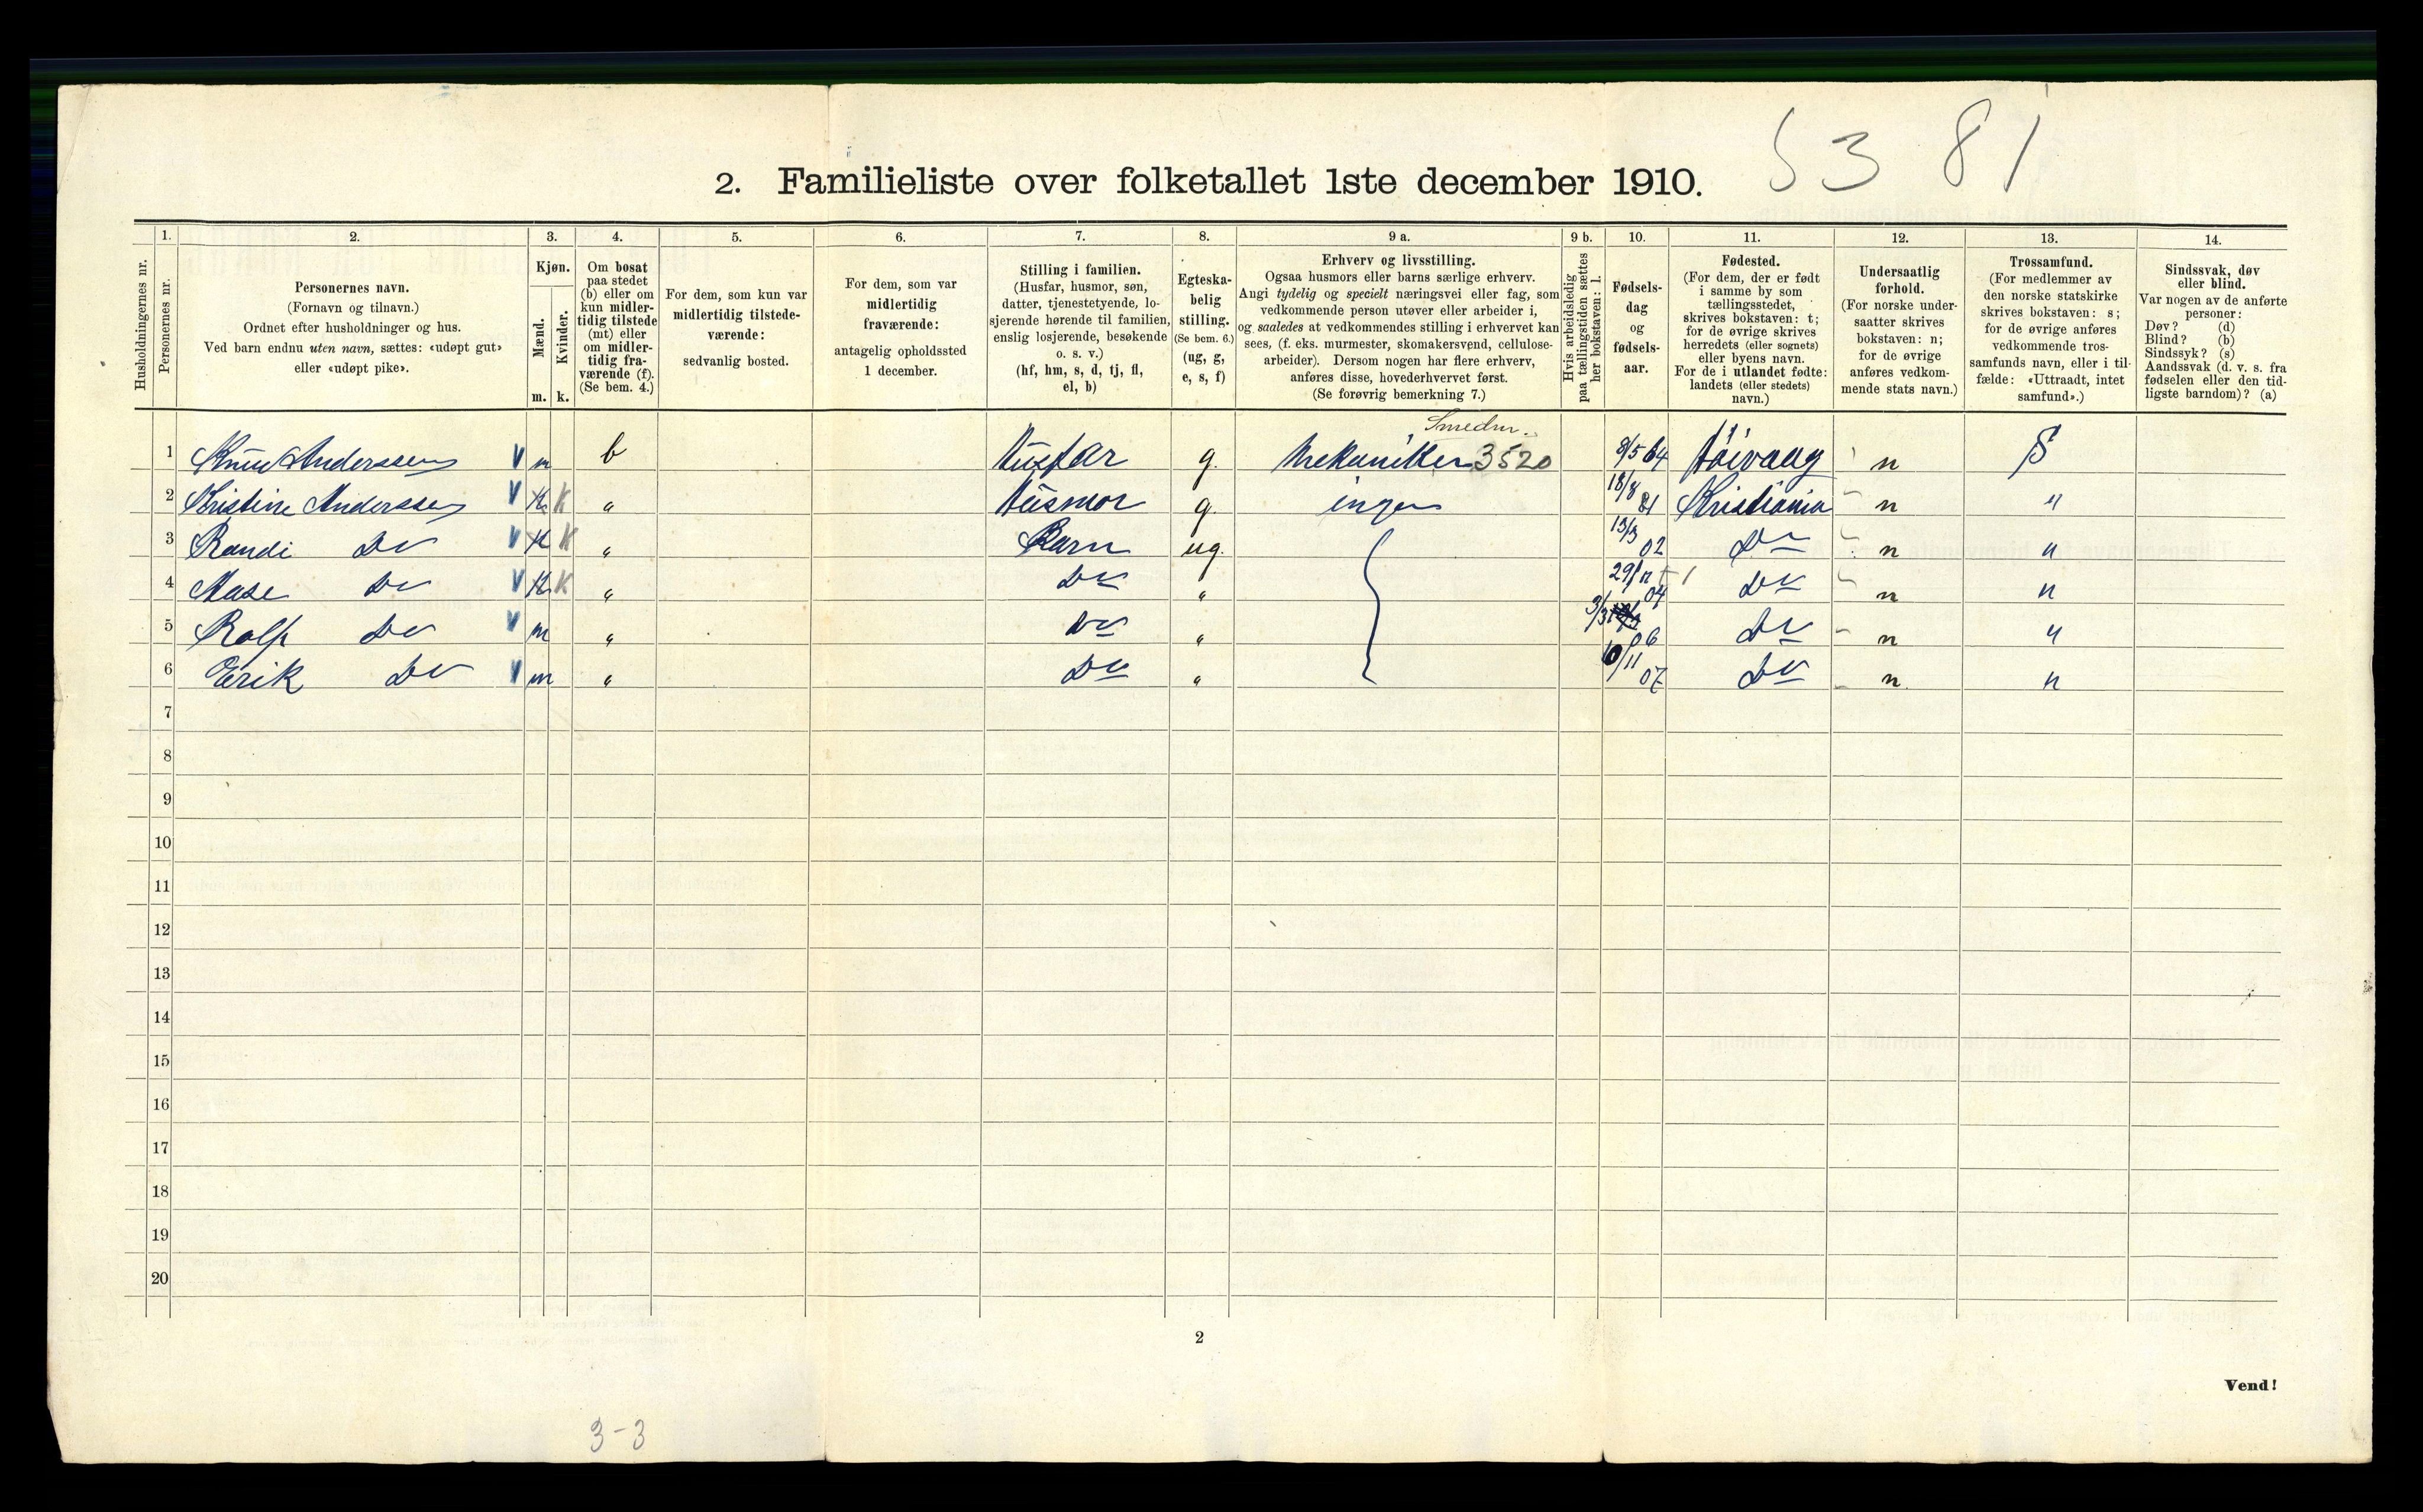 53 81
2. Familieliste over folketallet 1ste december 1910.
1. 2. 3. 4. 5. 6. 7. 8. 9 a. 9 b. 10. 11. 12. 13. 14.
Husholdningernes nr.
Personernes nr.
Personernes navn.
(Fornavn og tilnavn.)
Ordnet efter husholdninger og hus.
Ved barn endnu uten navn, sættes: «udøpt gut»
eller «udøpt pike».
Kjøn.
Mænd.
Kvinder.
m. k.
Om bosat
paa stedet
(b) eller om
kun midler-
tidig tilstede
(mt) eller
om midler-
tidig fra-
værende (f).
(Se bem. 4.)
For dem, som kun var
midlertidig tilstede-
værende:
sedvanlig bosted.
For dem, som var
midlertidig
fraværende:
antagelig opholdssted
1 december.
Stilling i familien.
(Husfar, husmor, søn,
datter, tjenestetyende, lo-
sjerende hørende til familien,
enslig losjerende, besøkende
o. s. v.)
(hf, hm, s, d, tj, fl,
el, b)
Egteska-
belig
stilling.
(Se bem. 6.)
(ug, g,
e, s, f)
Erhverv og livsstilling.
Ogsaa husmors eller barns særlige erhverv.
Angi tydelig og specielt næringsvei eller fag, som
vedkommende person utøver eller arbeider i,
og saaledes at vedkommendes stilling i erhvervet kan
sees, (f. eks. murmester, skomakersvend, cellulose-
arbeider). Dersom nogen har flere erhverv,
anføres disse, hovederhvervet først.
(Se forøvrig bemerkning 7.)
Hvis arbeidsledig
paa tællingstiden sættes
her bokstaven: l.
Fødsels-
dag
og
fødsels-
aar.
Fødested.
(For dem, der er født
i samme by som
tællingsstedet,
skrives bokstaven: t;
for de øvrige skrives
herredets (eller sognets)
eller byens navn.
For de i utlandet fødte:
landets (eller stedets)
navn.)
Undersaatlig
forhold.
(For norske under-
saatter skrives
bokstaven: n;
for de øvrige
anføres vedkom-
mende stats navn.)
Trossamfund.
(For medlemmer av
den norske statskirke
skrives bokstaven: s;
for de øvrige anføres
vedkommende tros-
samfunds navn, eller i til-
fælde: «Uttraadt, intet
samfund».)
Sindssvak, døv
eller blind.
Var nogen av de anførte
personer:
Døv? (d)
Blind? (b)
Sindssyk? (s)
Aandssvak (d. v. s. fra
fødselen eller den tid-
ligste barndom)? (a)
Smedm.
1 Knud Anderssen V m b Husfar g. Mekaniker 3520 8/5 64 n S
2 Kristine Anderssen V k k " Husmor g. ingen 18/8 81 Kristiania n "
3 Randi Do V k k " Barn ug. 13/3 02 Do n "
4 Aase Do V k k " Do " 29/12 04 Do n "
5 Rolf Do V m " Do " 3/3 06 Do n "
6 Erik Do V m " Do " 10/11 07 Do n. "
7
8
9
10
11
12
13
14
15
16
17
18
19
20
2
Vend!
3-3